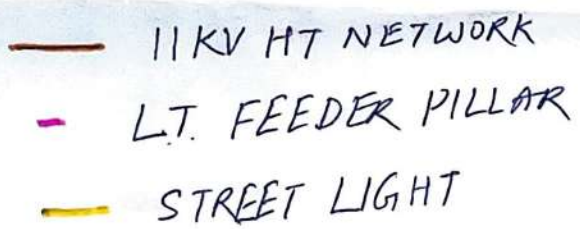 11KV HT NETWORK
L.T. FEEDER PILLAR
STREET LIGHT